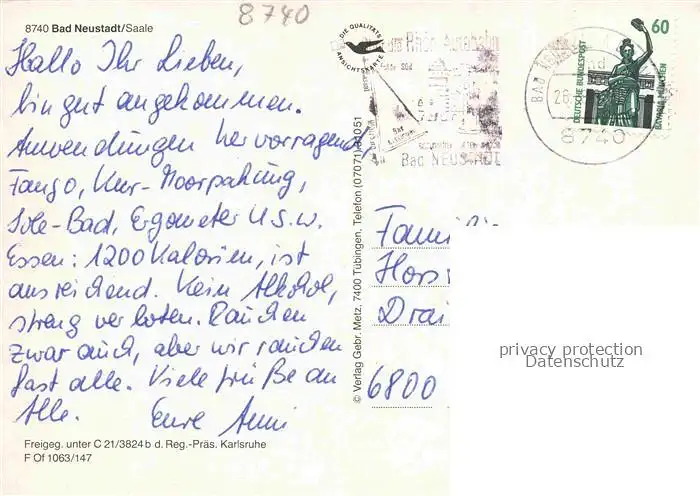 8740
8740 Bad Neustadt/Saale
Hallo Ihr Lieben,
bin gut angekommen.
Anwendungen hervorragend,
Fango, Kur-Moorpackung,
Sole-Bad, Ergometer u.s.w.
Essen: 1200 Kalorien, ist
ausreichend. Kein Alkohol,
streng verboten. Rauchen
zwar auch, aber wir rauchen
fast alle. Viele Grüße an
Alle. Eure Anni
Freigeg. unter C 21/3824 b d. Reg.-Präs. Karlsruhe
F Of 1063/147
© Verlag Gebr. Metz, 7400 Tübingen, Telefon (07071)
DIE QUALITÄTS
ANSICHTSKARTE
Rhön Autobahn
Bad NEUSTADT
BAD
8740
60
DEUTSCHE BUNDESPOST
BAVARIA MÜNCHEN
Fami
Hors
Drai
6800
privacy protection
Datenschutz